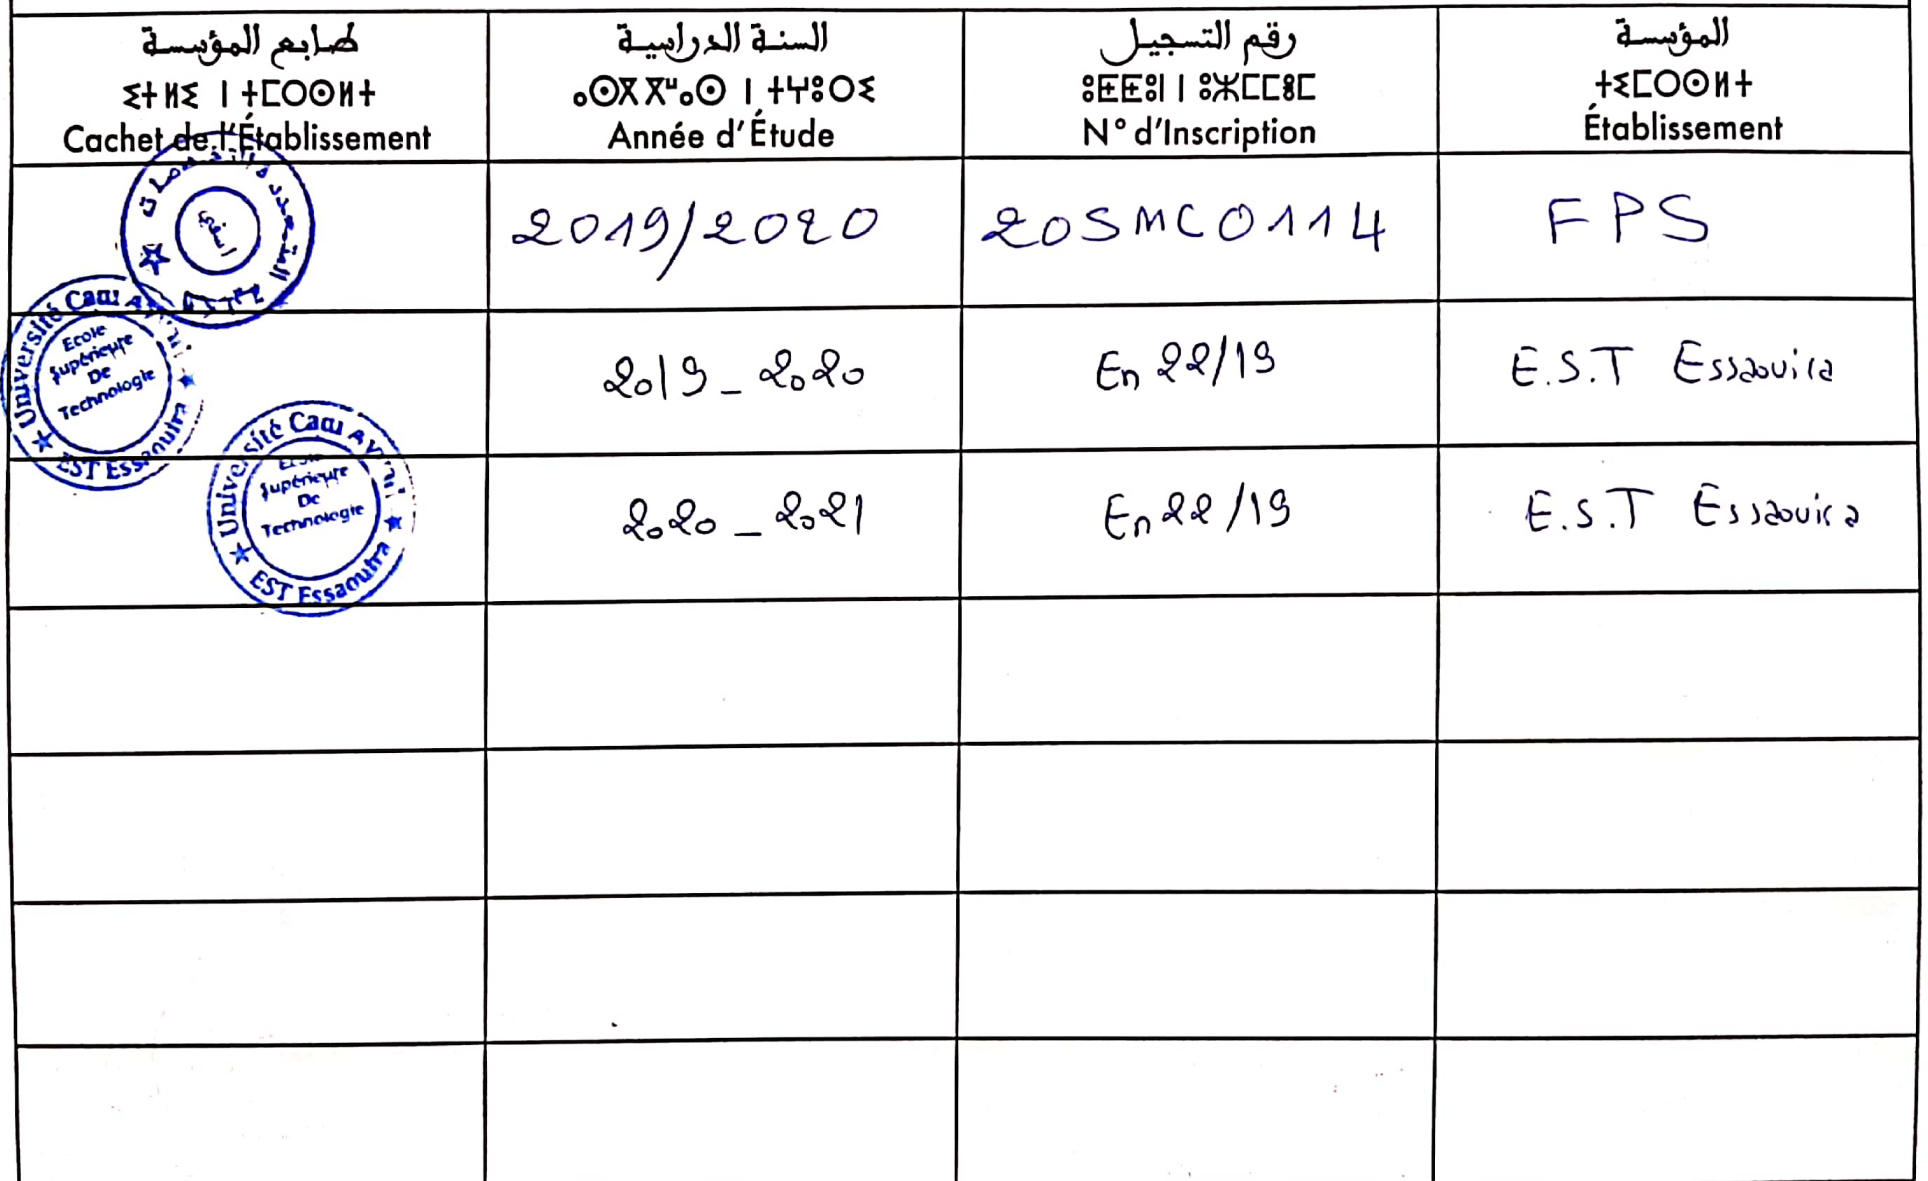 طابع المؤسسة
ⵉⵜⵍⵉ ⵏ ⵜⵎⵔⵙⵍⵜ
Cachet de l'Établissement
السنة الدراسية
ⴰⵙⴳⴳⵯⴰⵙ ⵏ ⵜⵖⵓⵔⵉ
Année d'Étude
رقم التسجيل
ⵓⵟⵟⵓⵏ ⵏ ⵓⵣⵎⵎⵓⵎ
N° d'Inscription
المؤسسة
ⵜⵉⵎⵔⵙⵍⵜ
Établissement
المتعددة التخصصات
آسفي
2019/2020
20SMC0114
FPS
Université Cadi Ayyad
Ecole
Supérieure
De
Technologie
EST Essaouira
2019_2020
En 22/19
E.S.T Essaouira
Université Cadi Ayyad
Supérieure
De
Technologie
EST Essaouira
2020_2021
En 22/19
E.S.T Essaouira